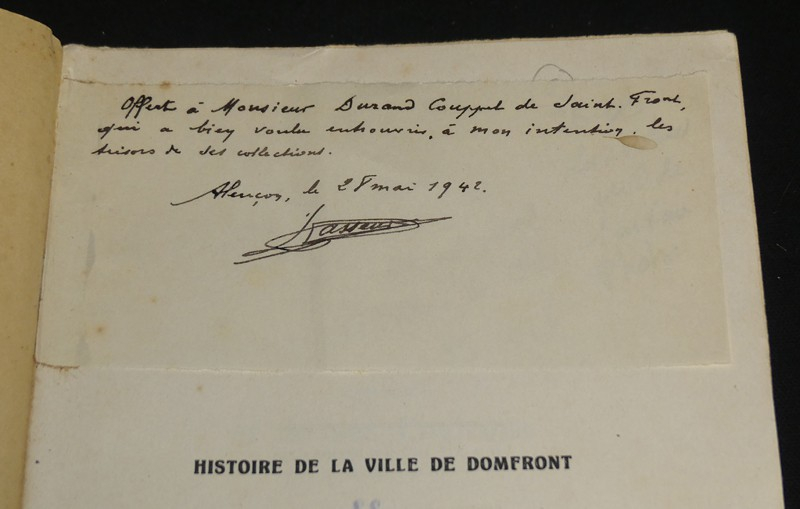 Offert à Monsieur Durand Couppel de Saint-Front,
qui a bien voulu entrouvrir, à mon intention, les
trésors de ses collections.
Alençon, le 28 mai 1942.
HISTOIRE DE LA VILLE DE DOMFRONT